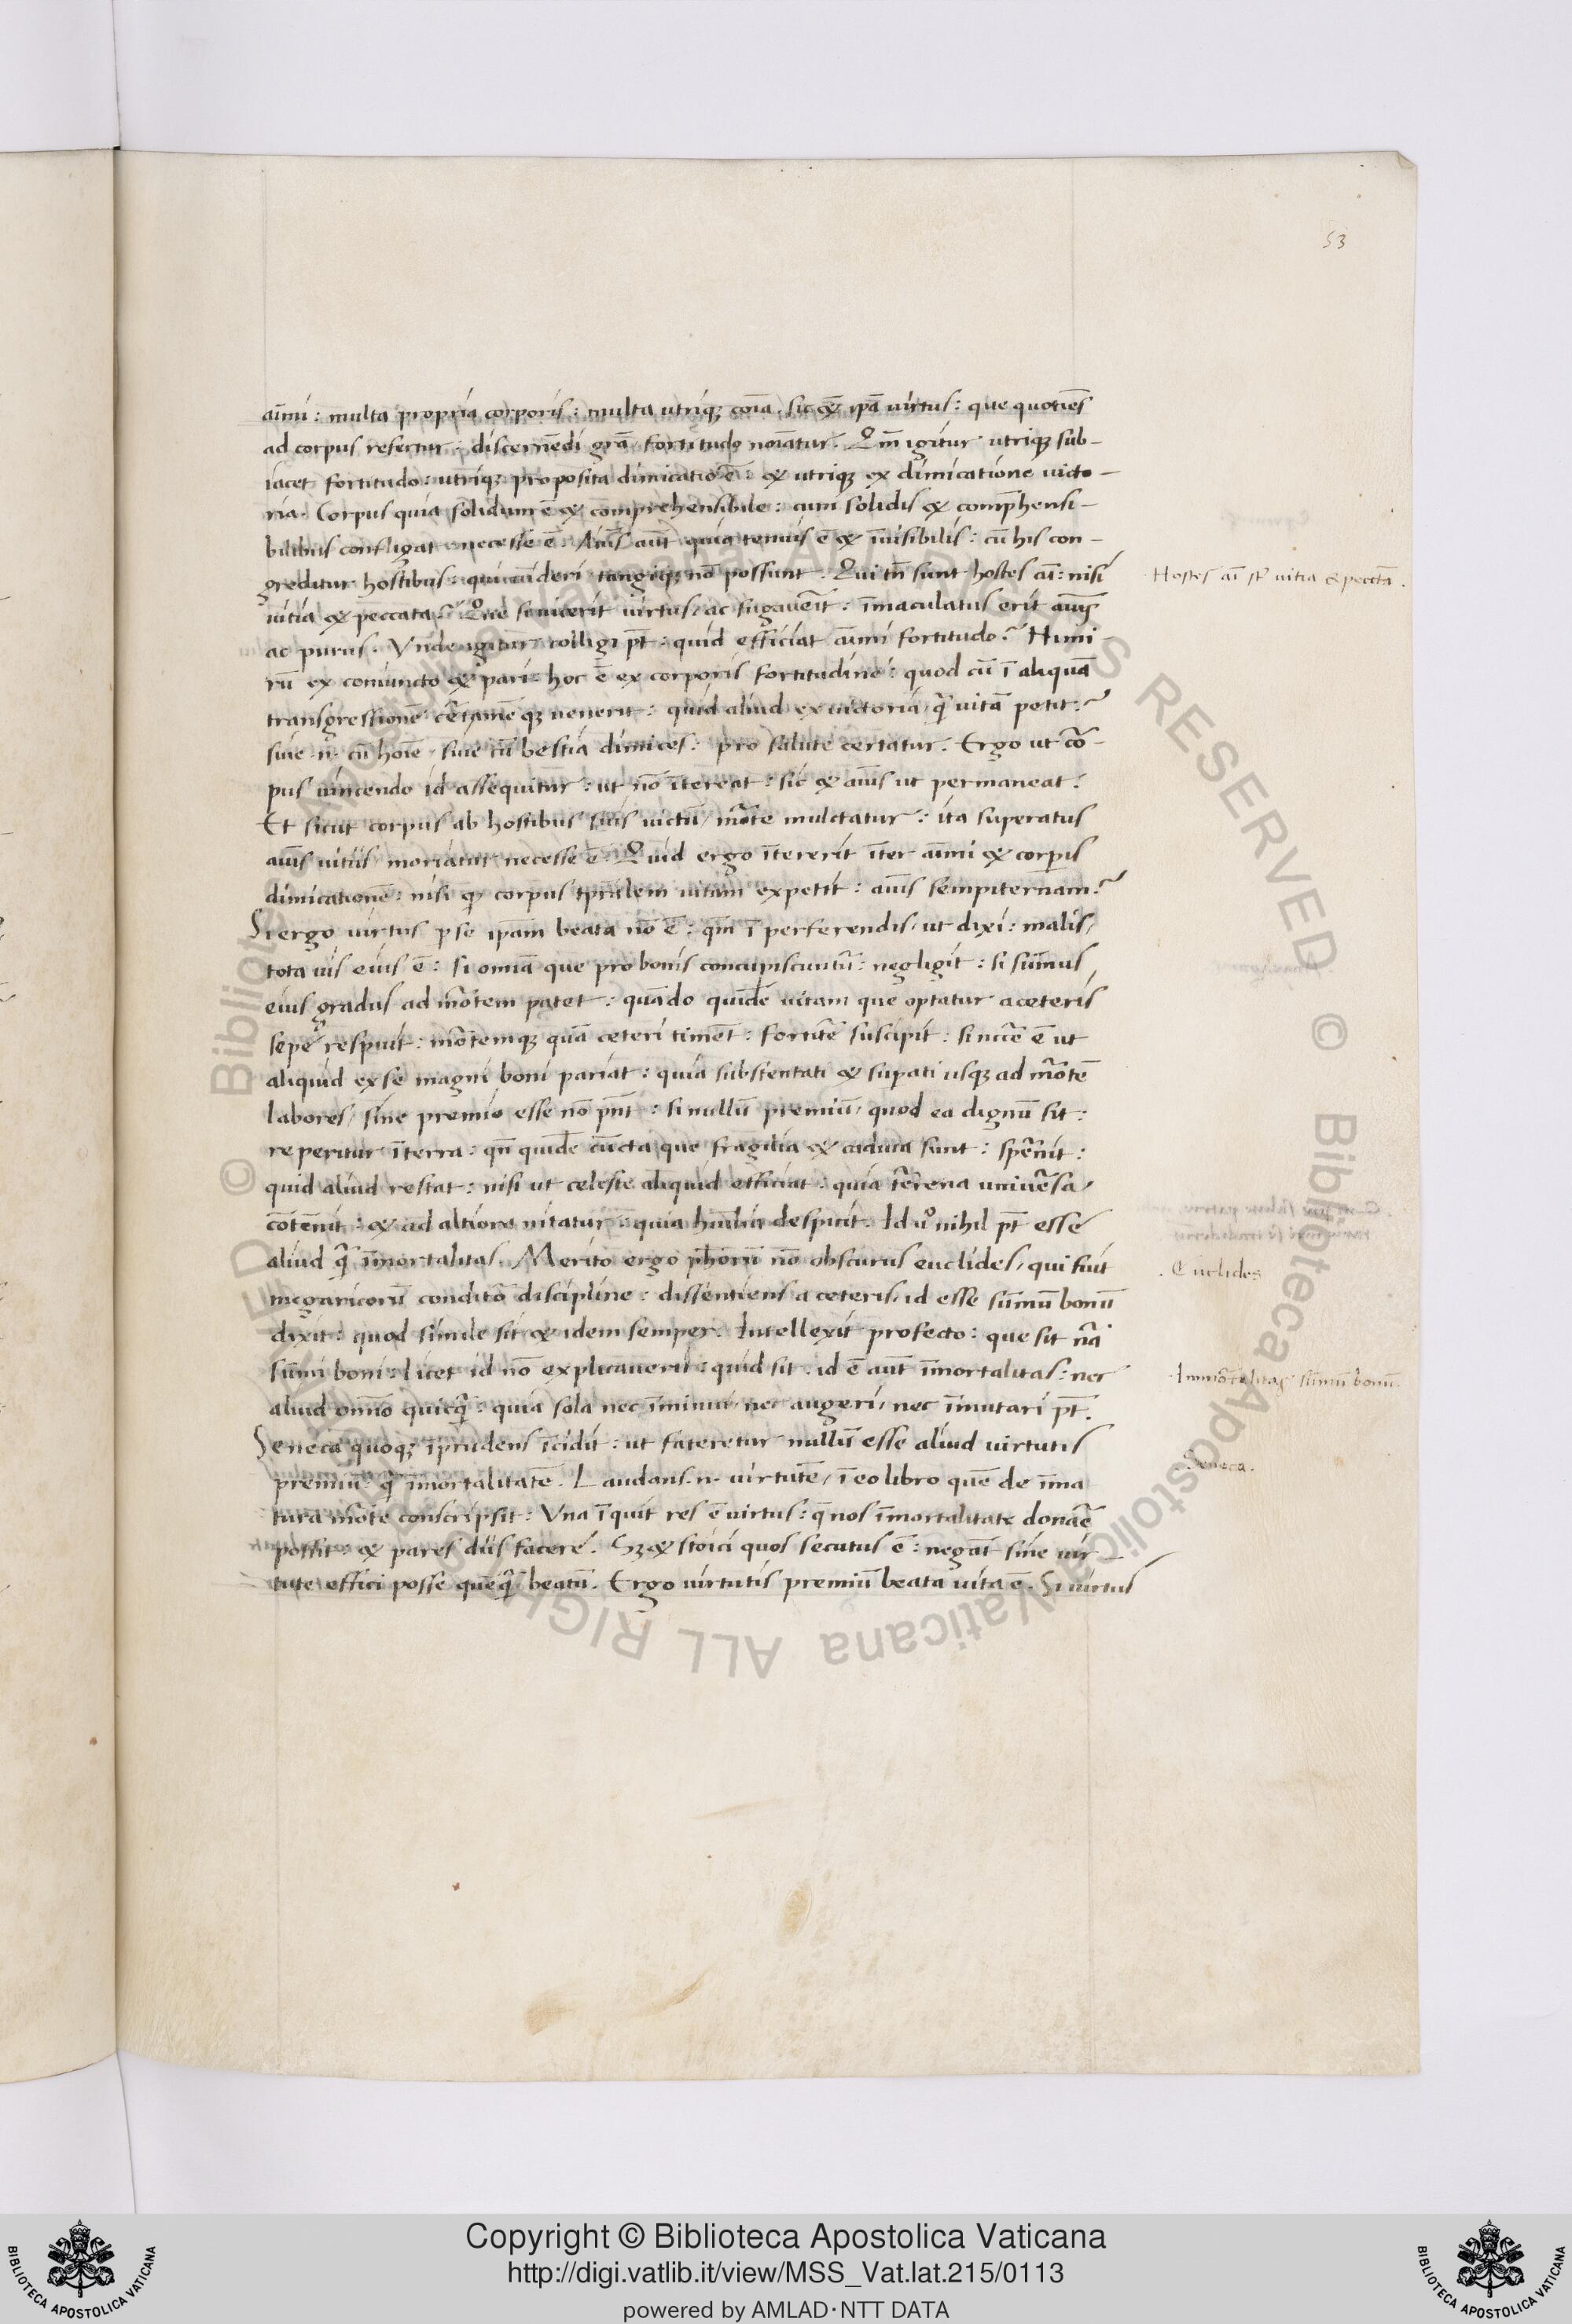 53
aīmi: multa propria corporis: multa utriq; coīa. sic & ipā virtus: que quotiēs
ad corpus refertur: discernēdi grā/ fortitudo noīatur. Qm̄ igitur utriq; sub-
iacet fortitudo: utriq; proposita dimicatio ē: & utriq; ex dimicatione victo-
ria. Corpus quia solidum ē & comprehensibile: cum solidis & comp̄hensi-
bilibus confligat necesse ē. Aīus aūt quia tenuis ē & īuisibilis: cū his con-
greditur hostibus: qui uideri tangiq; nō possunt. Qui tn̄ sunt hostes aī: nisi
uitia & peccata? Que si uicerit virtus/ ac fugauerīt: īmaculatus erit aīus
ac purus. Vnde igitur colligi pt̄: quid efficiat aīmi fortitudo? Nimi-
rū ex coniuncto & pari: hoc ē ex corporis fortitudine: quod cū ī aliquā
transgressionē certamē q; uenerit: quid aliud ex uictoria/ q̄ uitā petit?
siue .n. cū hoīe/ siue cū bestia dimices: pro salute certatur. Ergo ut cō-
pus uincendo id assequitur: ut nō ītereat: sic & aīus ut permaneat.
Et sicut corpus ab hostibus suis uictū/ mōte mulctatur: ita superatus
aīus uitiis moriatur necesse ē. Quid ergo ītererit īter aīmi & corpis
dimicationē: nisi q̄ corpus tp̄ralem uitam expetit: aīus sempiternam?
Si ergo uirtus p se ipam beata nō ē: qm̄ ī perferendis/ ut dixi: malis/
tota uis eius ē: si omīa que pro bonis concupiscuntur: negligit: si sūmus
eius gradus ad mōtem patet: quādo quidē uitam que optatur a ceteris
sepe respuit: mōtemq; quā ceteri timēt: fortitē suscipit: si necē ē ut
aliquid ex se magni boni pariat: quia substentati & supati usq; ad mōtē
labores/ sine premio esse nō pn̄t: si nullū premiū/ quod ea dignū sit:
reperitur ī terra: qn̄ quidē cūcta que fragilia & caduca sunt: spernit:
quid aliud restat: nisi ut celeste aliquid efficiat: quia terrena uniuersa/
cōtēnit: & ad altiora nitatur: quia humilia despicit. Id uº nihil pt̄ esse
aliud q̄ īmortalitas. Merito ergo ph̄orū nō obscurus euclides/ qui fuit
megaricorū conditō discipline: dissentiens a ceteris/ id esse sūmū bonū
dixit: quod simile sit & idem semper. Intellexit profecto: que sit nā
sūmi boni: licet id nō explicauerit: quid sit. id ē aūt īmortalitas: nec
aliud omīno quicq̄: quia sola nec īminui/ nec augeri/ nec īmutari pt̄.
Seneca quoq; īprudens īcidit: ut fateretur nullū esse aliud uirtutis
premiū q̄ īmortalitatē. Laudans .n. uirtutē/ ī eo libro quē de īma
tura mōte conscripsit: Vna īquit res ē virtus: q̄ nos īmortalitate donāē
possit: & pares diis facere. Sz & stoici quos secutus ē: negāt sine uir-
tute effici posse quēq̄ beatū. Ergo uirtutis premiū beata uita ē. Si uirtus
Hostes aī st̄ uitia & peccāta.
Euclides
Immōtalitas sūmū bonū.
Seneca.
Copyright © Biblioteca Apostolica Vaticana
http://digi.vatlib.it/view/MSS_Vat.lat.215/0113
powered by AMLAD·NTT DATA
BIBLIOTECA APOSTOLICA VATICANA
BIBLIOTECA APOSTOLICA VATICANA
© Biblioteca Apostolica Vaticana ALL RIGHTS RESERVED
© Biblioteca Apostolica Vaticana ALL RIGHTS RESERVED